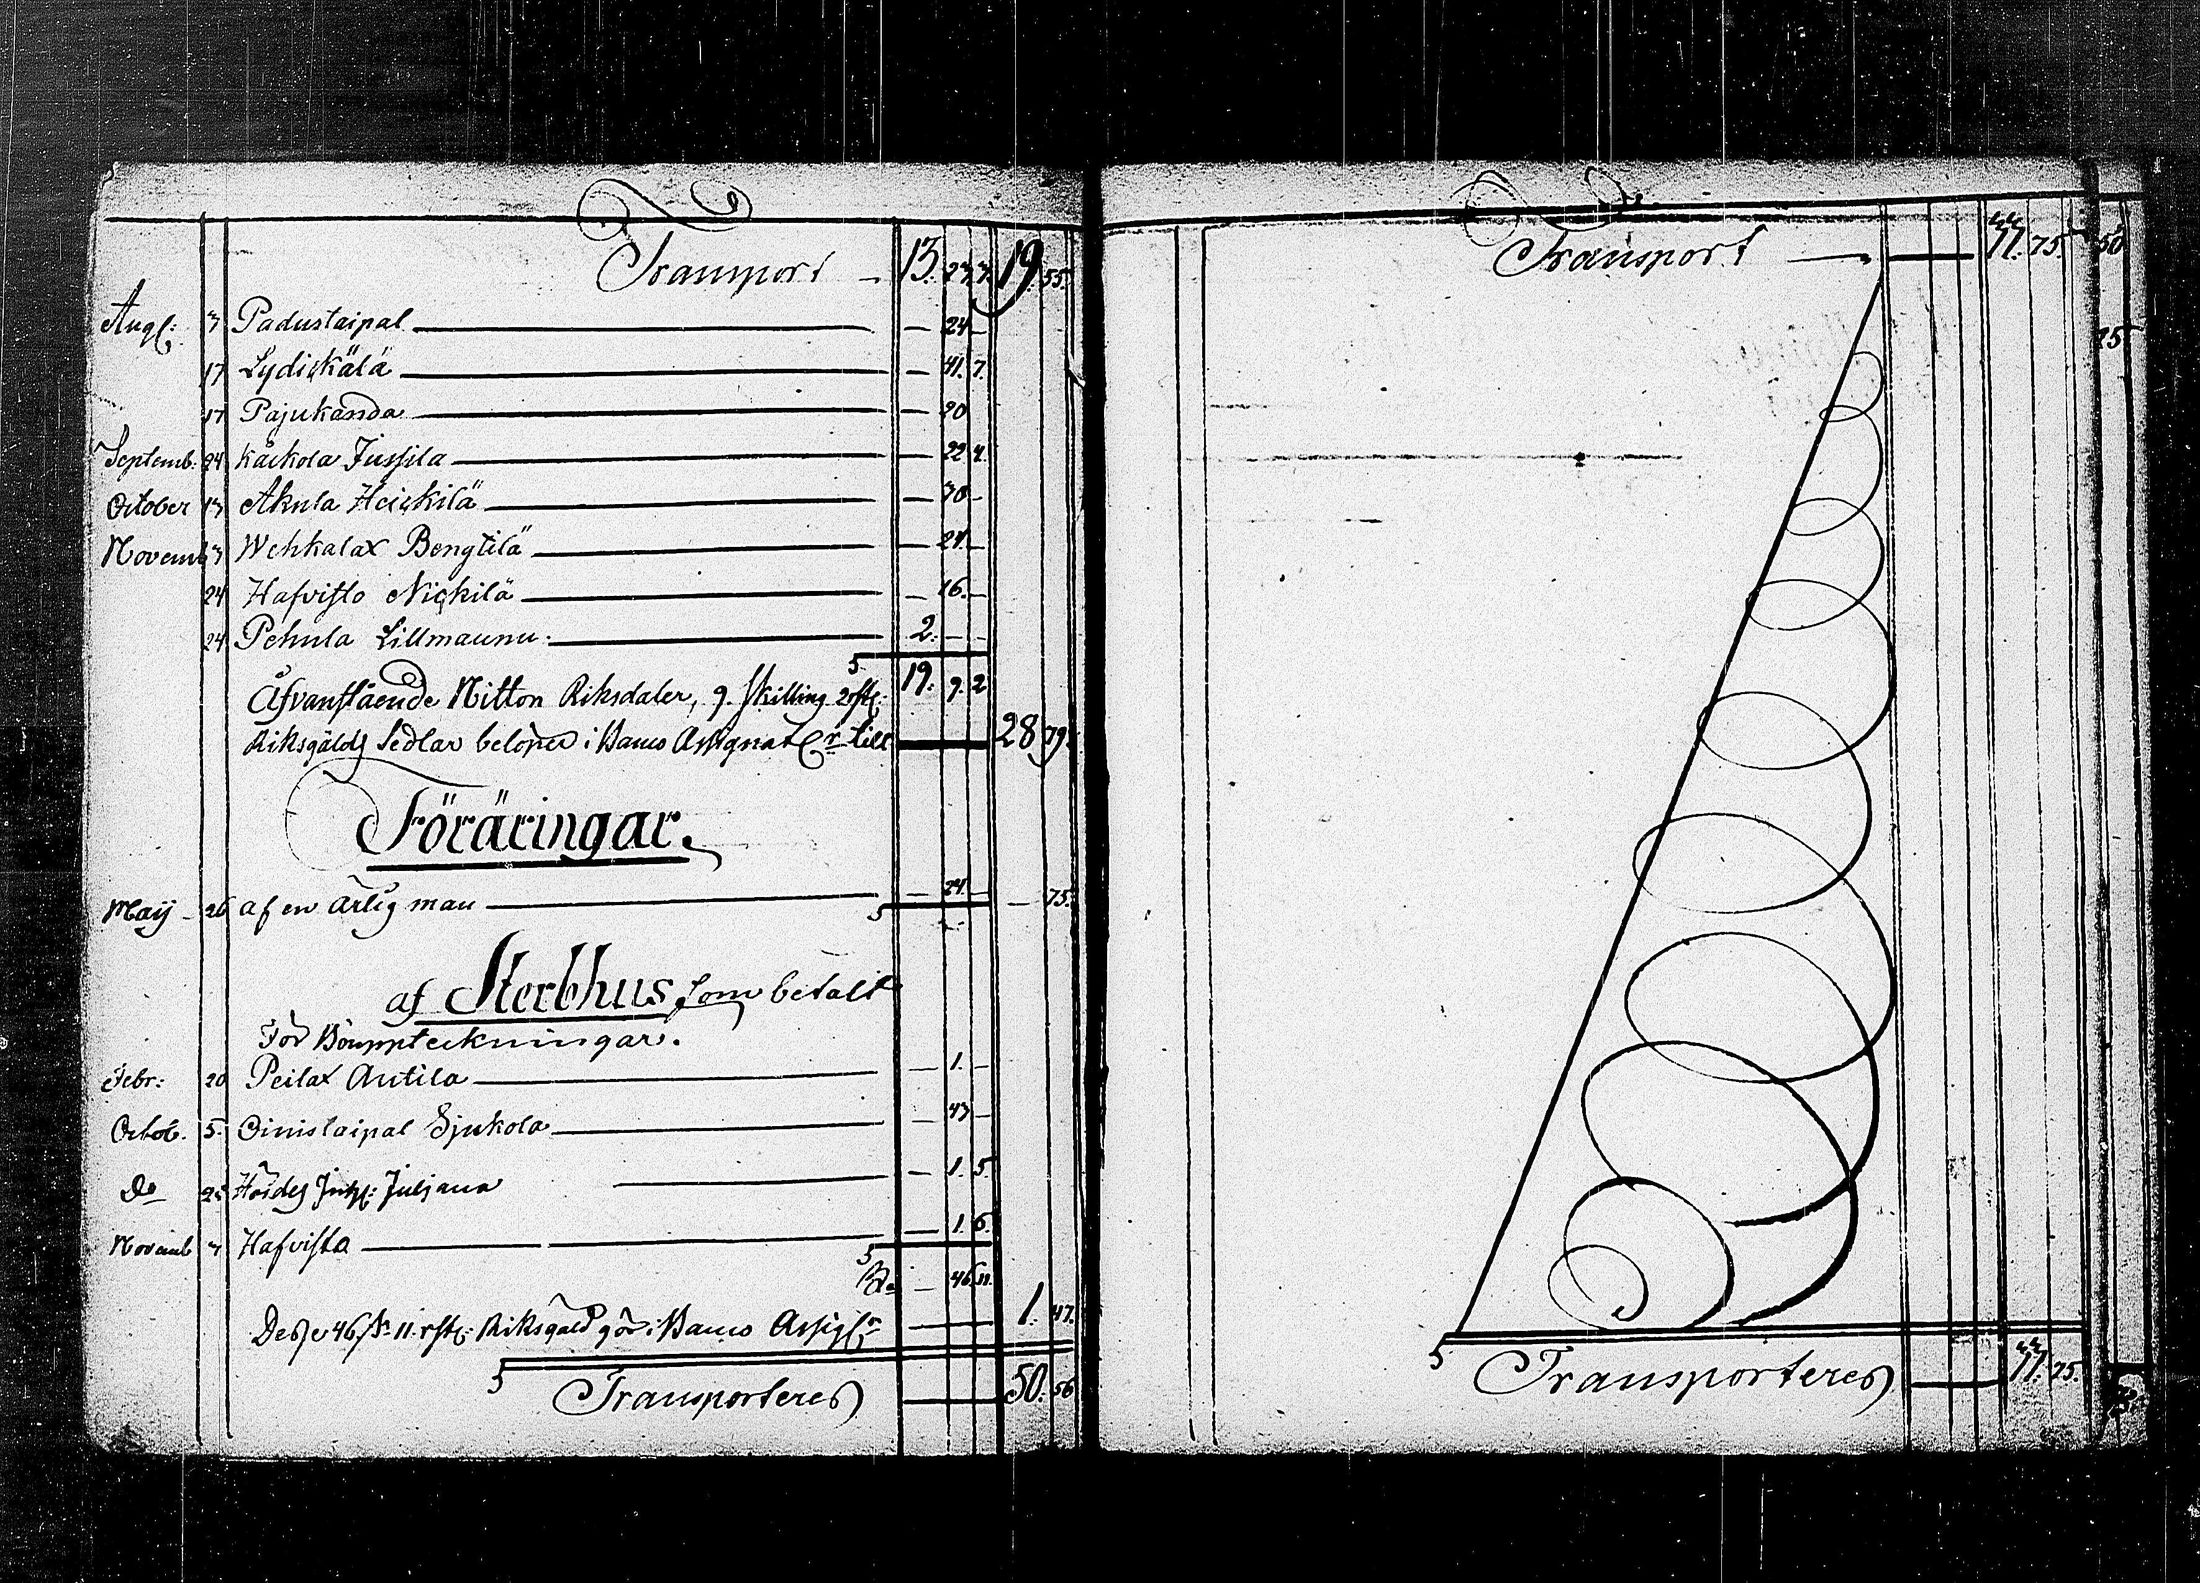 Transport — 13. 27. 7. 19. 55.
Aug: 3 Padustaipal — 24 —
17 Lydickälä — 41. 7.
17 Pajukanda — 20
Septemb: 24 Kackola Jussila — 22 4.
October 13 Akula Heickilä — 30 —
Novemb 3 Wehkalax Bengtilä — 24 —
24 Hafvisto Nickilä — 16. —
24 Pehula Lillmaunu: 2. — —
19. 9. 2
Åfvanstående Nitton Riksdaler, 9. skilling 2 rst:
Riksgälds Sedlar belöper i Banco Assignat till 28 79.
Föräringar.
Maij 26 af en ärlig man — 24. — — 75.
af Sterbhus som betalt
För Bouppteckningar.
Febr: 20 Peilax Antila — 1. —
Octob. 5. Oinislaipal Sjukola — 43 —
Do 25 Juljana — 1. 5.
Novemb 3 Hafvista — 1. 6.
— 46. 11.
Desse 46 sk 11. rst: Riksgäld gör i Banco Assig 1. 47.
Transporteres 50. 56
Transport — 77. 75. 50
25
Transporteres 77. 75.